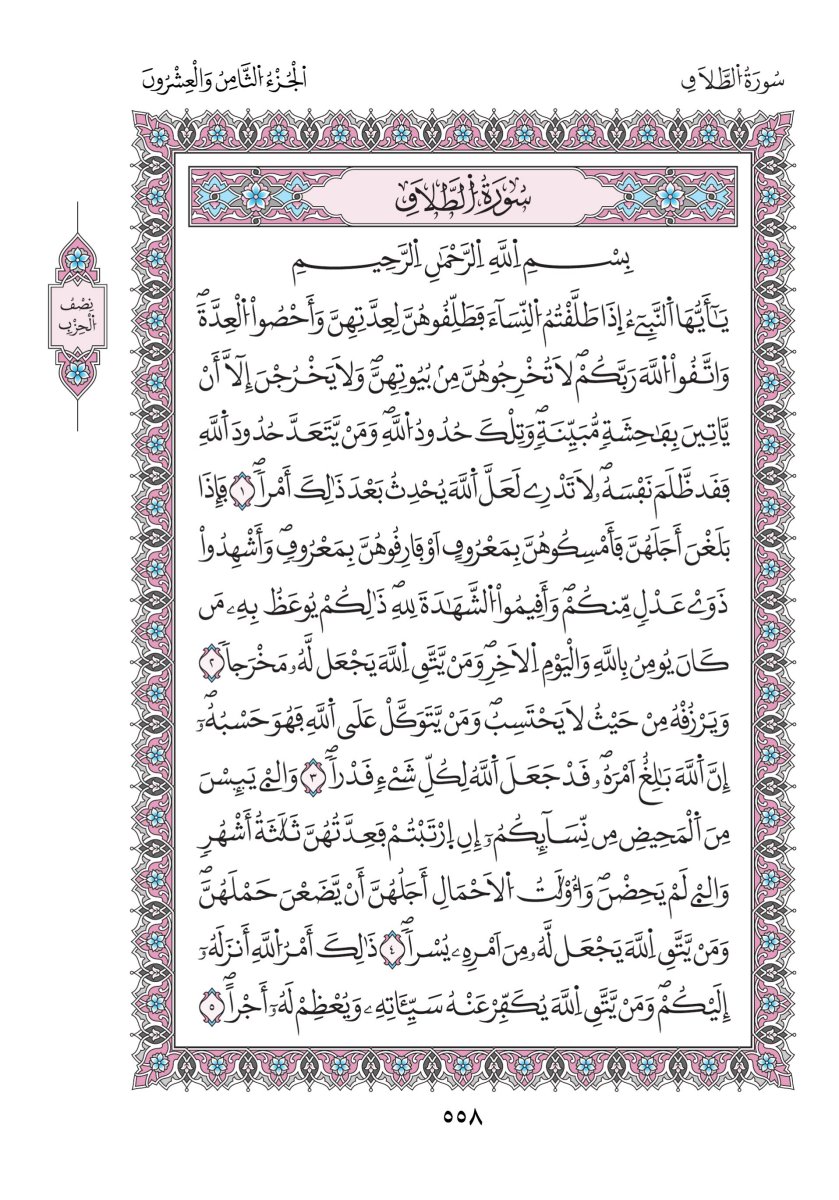 سُورَةُ الطَّلَاقِ
الْجُزْءُ الثَّامِنُ وَالْعِشْرُونَ
سُورَةُ الطَّلَاقِ
نِصْفُ
الْحِزْبِ
بِسْمِ اِللَّهِ اِلرَّحْمَٰنِ اِلرَّحِيمِ
يَٰٓأَيُّهَا اَلنَّبِےٓءُ اِ۪ذَا طَلَّقْتُمُ اُلنِّسَآءَ فَطَلِّقُوهُنَّ لِعِدَّتِهِنَّ وَأَحْصُواْ اُلْعِدَّةَۖ
وَاتَّقُواْ اُللَّهَ رَبَّكُمْۖ لَا تُخْرِجُوهُنَّ مِنۢ بُيُوتِهِنَّۖ وَلَا يَخْرُجْنَ إِلَّآ أَنْ
يَّاتِينَ بِفَٰحِشَةٖ مُّبَيِّنَةٖۖ وَتِلْكَ حُدُودُ اُللَّهِۖ وَمَنْ يَّتَعَدَّ حُدُودَ اَللَّهِ
فَقَد ظَّلَمَ نَفْسَهُۥۖ لَا تَدْرِے لَعَلَّ اَللَّهَ يُحْدِثُ بَعْدَ ذَٰلِكَ أَمْراٗۖ ١ فَإِذَا
بَلَغْنَ أَجَلَهُنَّ فَأَمْسِكُوهُنَّ بِمَعْرُوفٍ اَوْ فَارِقُوهُنَّ بِمَعْرُوفٖۖ وَأَشْهِدُواْ
ذَوَےْ عَدْلٖ مِّنكُمْۖ وَأَقِيمُواْ اُلشَّهَٰدَةَ لِلهِۖ ذَٰلِكُمْ يُوعَظُ بِهِۦ مَن
كَانَ يُومِنُ بِاللَّهِ وَالْيَوْمِ اِلَاخِرِۖ وَمَنْ يَّتَّقِ اِللَّهَ يَجْعَل لَّهُۥ مَخْرَجاٗ ٢
وَيَرْزُقْهُ مِنْ حَيْثُ لَا يَحْتَسِبُۖ وَمَنْ يَّتَوَكَّلْ عَلَى اَللَّهِ فَهُوَ حَسْبُهُۥٓۖ
إِنَّ اَللَّهَ بَٰلِغٌ اَمْرَهُۥۖ قَدْ جَعَلَ اَللَّهُ لِكُلِّ شَےْءٖ قَدْراٗۖ ٣ وَالِےْ يَئِسْنَ
مِنَ اَلْمَحِيضِ مِن نِّسَآئِكُمُۥٓ إِنِ اِرْتَبْتُمْ فَعِدَّتُهُنَّ ثَلَٰثَةُ أَشْهُرٖ
وَالِےْ لَمْ يَحِضْنَۖ وَأُوْلَٰتُ اُلَاحْمَالِ أَجَلُهُنَّ أَنْ يَّضَعْنَ حَمْلَهُنَّۖ
وَمَنْ يَّتَّقِ اِللَّهَ يَجْعَل لَّهُۥ مِنَ اَمْرِهِۦ يُسْراٗۖ ٤ ذَٰلِكَ أَمْرُ اُللَّهِ أَنزَلَهُۥٓ
إِلَيْكُمْۖ وَمَنْ يَّتَّقِ اِللَّهَ يُكَفِّرْ عَنْهُ سَيِّـَٔاتِهِۦ وَيُعْظِمْ لَهُۥٓ أَجْراًۖ ٥
٥٥٨